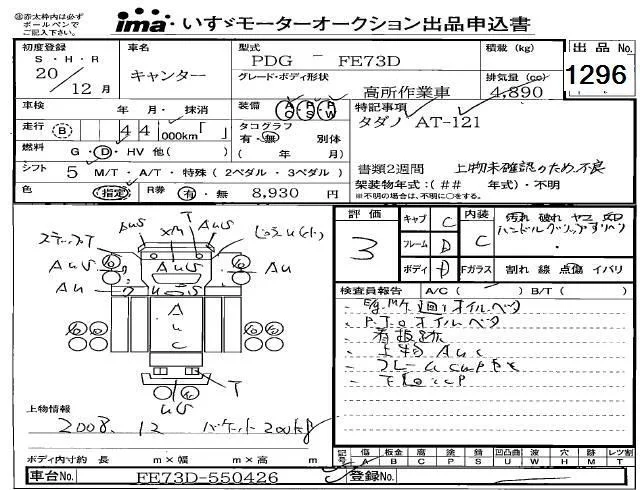 ※赤太枠内は必ず
ボールペンで
ご記入下さい。
ima いすゞモーターオークション出品申込書
初度登録 車名 型式 積載(kg) 出品No.
S・H・R
20/12月 キャンター PDG - FE73D
1296
グレード・ボディ形状 排気量(cc)
高所作業車 4,890
車検 年 月・抹消 装備 A C P S P W 特記事項
走行 B 44 000km「 」 タコグラフ 有・無 別体 タダノ AT-121
燃料 G・D・HV 他( ) ( 年 月)
シフト 5 M/T・A/T・特殊(2ペダル・3ペダル) 書類2週間 上物未確認のため不良
色 (指定) R券 有・無 8,930円 架装物年式:(## 年式)・不明
※製造年月、不明の場合は、不明に○をする。
評価 3
キャブ C 内装 C 汚れ 破れ ヤコ
フレーム D ハンドルグリップすりへり
ボディ D Fガラス 割れ 線 点傷 イバリ
検査員報告 A/C( ) B/T( )
Eg.M/T廻りオイルベタ
P.T.Oオイルベタ
看板跡
上物 AUC
フレーム
ステップT AUS XM T
AUS AUS AU
AU US
A
U
C
T
US
上物情報
2008. 12 バケット 200kg
ボディ内寸約 長 m×幅 m×高 m
記号 傷 板金 腐 塗 錆 凹 凸曲 波 穴 跡 レツ割
A B C P S U W H M T
車台No. FE73D-550426 登録No.